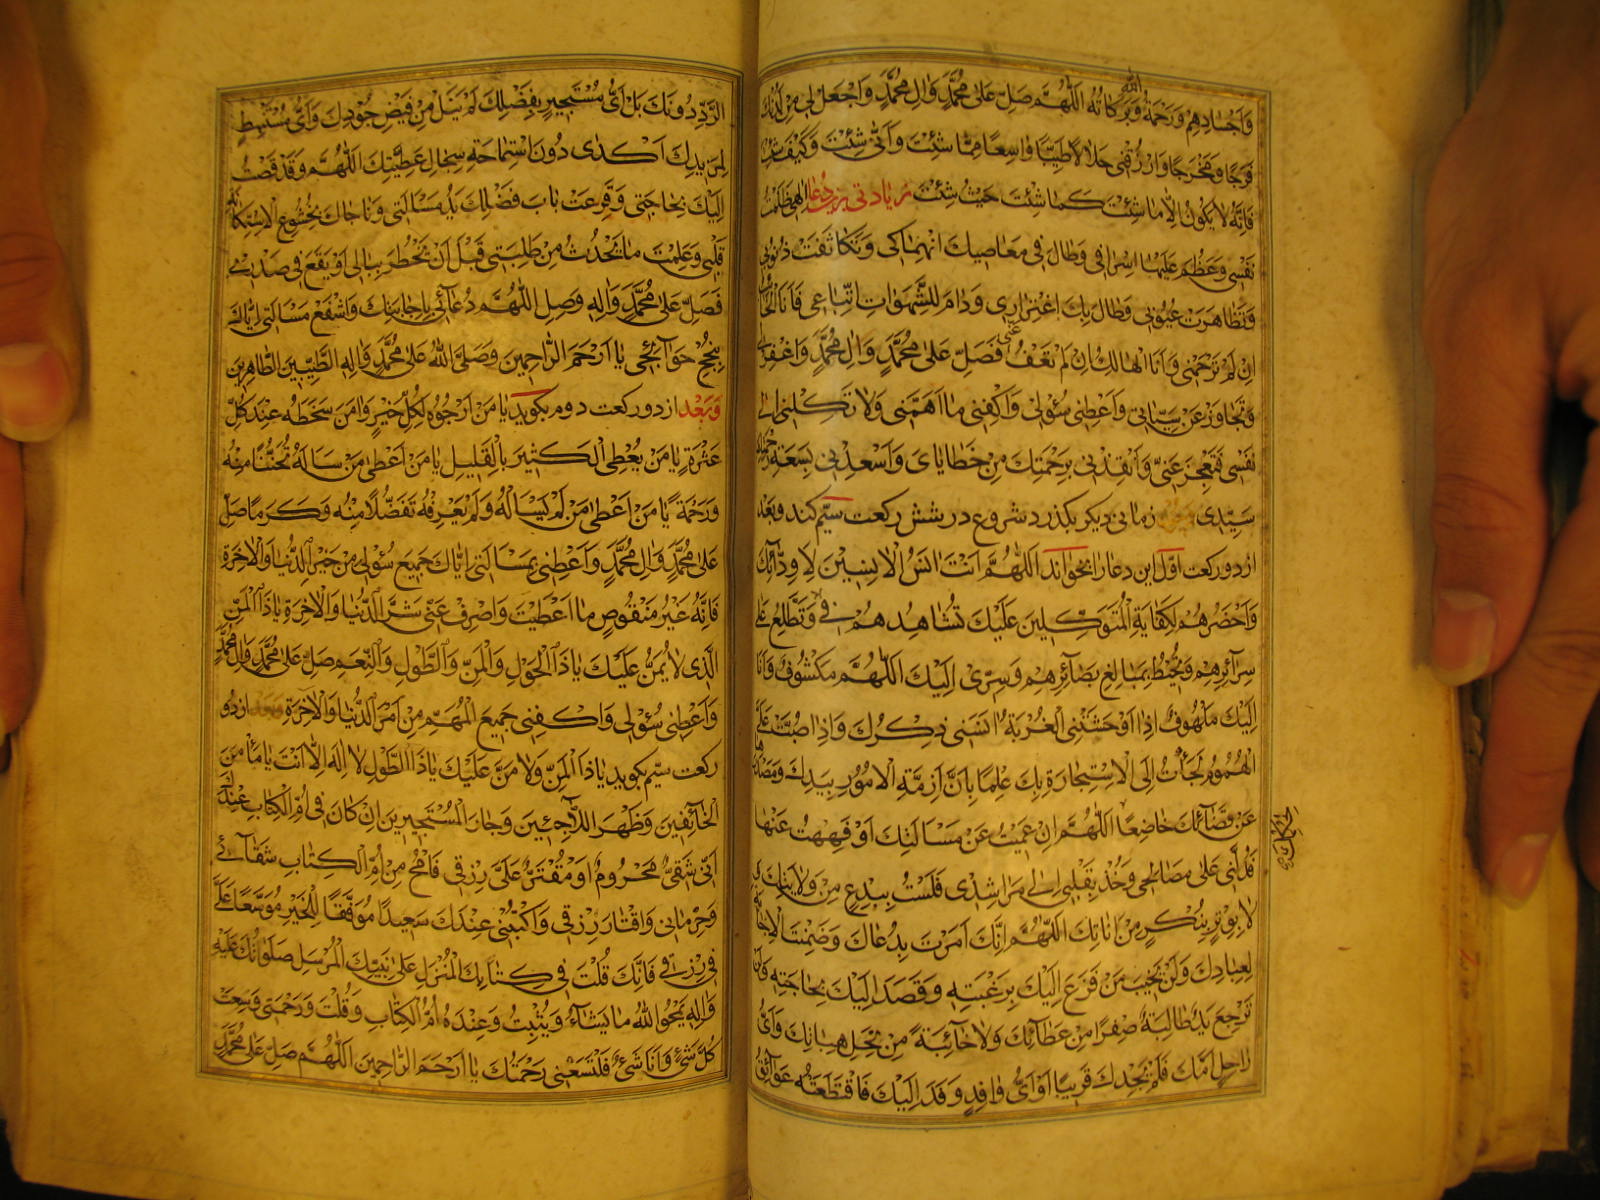 وَاَجْسَادِهِمْ وَرَحْمَةُ اللّٰهِ وَبَرَكَاتُهُ اَللّٰهُمَّ صَلِّ عَلٰى مُحَمَّدٍ وَاٰلِ مُحَمَّدٍ وَاجْعَلْ لِي مِنْ لَدُنْكَ
فَرَجًا وَمَخْرَجًا وَارْزُقْنِي حَلَالًا طَيِّبًا وَاسِعًا مِمَّا شِئْتَ وَاَنّٰى شِئْتَ وَكَيْفَ شِئْتَ
فَاِنَّهُ لَا يَكُونُ اِلَّا مَا شِئْتَ كَمَا شِئْتَ حَيْثُ شِئْتَ زيادتى برين دعا اِلٰهِي ظَلَمْتُ
نَفْسِي وَعَظُمَ عَلَيْهَا اِسْرَافِي وَطَالَ فِي مَعَاصِيكَ انْهِمَاكِي وَتَكَاثَفَتْ ذُنُوبِي
وَتَظَاهَرَتْ عُيُوبِي وَطَالَ بِكَ اغْتِرَارِي وَدَامَ لِلشَّهَوَاتِ اتِّبَاعِي فَاَنَا الْخَائِبُ
اِنْ لَمْ تَرْحَمْنِي وَاَنَا الْهَالِكُ اِنْ لَمْ تَعْفُ عَنِّي فَصَلِّ عَلٰى مُحَمَّدٍ وَاٰلِ مُحَمَّدٍ وَاغْفِرْ لِي
وَتَجَاوَزْ عَنْ سَيِّئَاتِي وَاَعْطِنِي سُؤْلِي وَاكْفِنِي مَا اَهَمَّنِي وَلَا تَكِلْنِي اِلٰى
نَفْسِي فَتَعْجِزَ عَنِّي وَاَنْقِذْنِي بِرَحْمَتِكَ مِنْ خَطَايَايَ وَاَسْعِدْنِي بِسَعَةِ رَحْمَتِكَ
سَيِّدِي زمانى ديكر بكذرد شروع در شش ركعت سيّم كند وبعد
از دو ركعت اوّل اين دعا را بخواند اَللّٰهُمَّ اَنْتَ اٰنَسُ الْاٰنِسِينَ لِاَوِدَّائِكَ
وَاَحْضَرُهُمْ لِكِفَايَةِ الْمُتَوَكِّلِينَ عَلَيْكَ تُشَاهِدُهُمْ فِي وَتَطَّلِعُ عَلٰى
سَرَائِرِهِمْ وَتُحِيطُ بِمَبَالِغِ بَصَائِرِهِمْ وَسِرِّي اِلَيْكَ اَللّٰهُمَّ مَكْشُوفٌ وَاَنَا
اِلَيْكَ مَلْهُوفٌ اِذَا اَوْحَشَتْنِي الْغُرْبَةُ اٰنَسَنِي ذِكْرُكَ وَاِذَا صُبَّتْ عَلَيَّ
الْهُمُومُ لَجَأْتُ اِلَى الْاِسْتِجَارَةِ بِكَ عِلْمًا بِاَنَّ اَزِمَّةَ الْاُمُورِ بِيَدِكَ وَمَصْدَرَهَا
عَنْ قَضَائِكَ خَاضِعًا اَللّٰهُمَّ اِنْ عَمِيتُ عَنْ مَسْاَلَتِكَ اَوْ فَهِهْتُ عَنْهَا
فَدُلَّنِي عَلٰى مَصَالِحِي وَخُذْ بِقَلْبِي اِلٰى مَرَاشِدِي فَلَسْتُ بِبِدْعٍ مِنْ وَلَايَتِكَ
لَا بِوِتْرٍ بِنُكْرٍ مِنْ اَنَاتِكَ اَللّٰهُمَّ اِنَّكَ اَمَرْتَ بِدُعَاكَ وَضَمِنْتَ الْاِجَابَةَ
لِعِبَادِكَ وَلَنْ يَخِيبَ مَنْ فَزِعَ اِلَيْكَ بِرَغْبَتِهِ وَقَصَدَ اِلَيْكَ بِحَاجَتِهِ وَلَنْ
تَرْجِعَ يَدٌ طَالِبَةٌ صِفْرًا مِنْ عَطَائِكَ وَلَا خَائِبَةً مِنْ نِحَلِ هِبَاتِكَ وَاَيُّ
رَاحِلٍ اَمَّكَ فَلَمْ يَجِدْكَ قَرِيبًا اَوْ اَيُّ وَافِدٍ وَفَدَ اِلَيْكَ فَاقْتَطَعَتْهُ عَوَائِقُ
الرَّدِّ دُونَكَ بَلْ اَيُّ مُسْتَجِيرٍ بِفَضْلِكَ لَمْ يَنَلْ مِنْ فَيْضِ جُودِكَ وَاَيُّ مُسْتَنْبِطٍ
لِمَزِيدِكَ اَكْدٰى دُونَ اسْتِمَاحَةِ سِجَالِ عَطِيَّتِكَ اَللّٰهُمَّ وَقَدْ قَصَدْتُ
اِلَيْكَ بِحَاجَتِي وَقَرَعَتْ بَابَ فَضْلِكَ يَدُ مَسْاَلَتِي وَنَاجَاكَ بِخُشُوعِ الْاِسْتِكَانَةِ
قَلْبِي وَعَلِمْتَ مَا يَحْدُثُ مِنْ طَلِبَتِي قَبْلَ اَنْ يَخْطُرَ بِبَالِي اَوْ يَقَعَ فِي صَدْرِي
فَصَلِّ عَلٰى مُحَمَّدٍ وَاٰلِهِ وَصِلِ اللّٰهُمَّ دُعَائِي بِاِجَابَتِكَ وَاشْفَعْ مَسْاَلَتِي اِيَّاكَ
بِنُجْحِ حَوَائِجِي يَا اَرْحَمَ الرَّاحِمِينَ وَصَلَّى اللّٰهُ عَلٰى مُحَمَّدٍ وَاٰلِهِ الطَّيِّبِينَ الطَّاهِرِينَ
وبعد از دو ركعت دوم بكويد يَا مَنْ اَرْجُوهُ لِكُلِّ خَيْرٍ وَاٰمَنُ سَخَطَهُ عِنْدَ كُلِّ
عَثْرَةٍ يَا مَنْ يُعْطِي الْكَثِيرَ بِالْقَلِيلِ يَا مَنْ اَعْطٰى مَنْ سَاَلَهُ تَحَنُّنًا مِنْهُ
وَرَحْمَةً يَا مَنْ اَعْطٰى مَنْ لَمْ يَسْاَلْهُ وَلَمْ يَعْرِفْهُ تَفَضُّلًا مِنْهُ وَكَرَمًا صَلِّ
عَلٰى مُحَمَّدٍ وَاٰلِ مُحَمَّدٍ وَاَعْطِنِي بِمَسْاَلَتِي اِيَّاكَ جَمِيعَ سُؤْلِي مِنْ خَيْرِ الدُّنْيَا وَالْاٰخِرَةِ
فَاِنَّهُ غَيْرُ مَنْقُوصٍ مَا اَعْطَيْتَ وَاصْرِفْ عَنِّي شَرَّ الدُّنْيَا وَالْاٰخِرَةِ يَا ذَا الْمَنِّ
الَّذِي لَا يُمَنُّ عَلَيْكَ يَا ذَا الْحَوْلِ وَالْمَنِّ وَالطَّوْلِ وَالنِّعَمِ صَلِّ عَلٰى مُحَمَّدٍ وَاٰلِ مُحَمَّدٍ
وَاَعْطِنِي سُؤْلِي وَاكْفِنِي جَمِيعَ الْمُهِمِّ مِنْ اَمْرِ الدُّنْيَا وَالْاٰخِرَةِ وبعد از دو
ركعت سيّم بكويد يَا ذَا الْمَنِّ وَلَا مَنَّ عَلَيْكَ يَا ذَا الطَّوْلِ لَا اِلٰهَ اِلَّا اَنْتَ يَا مَأْمَنَ
الْخَائِفِينَ وَظَهْرَ اللَّاجِئِينَ وَجَارَ الْمُسْتَجِيرِينَ اِنْ كَانَ فِي اُمِّ الْكِتَابِ عِنْدَكَ
اَنِّي شَقِيٌّ مَحْرُومٌ اَوْ مُقَتَّرٌ عَلَيَّ رِزْقِي فَامْحُ مِنْ اُمِّ الْكِتَابِ شَقَائِي
وَحِرْمَانِي وَاِقْتَارَ رِزْقِي وَاكْتُبْنِي عِنْدَكَ سَعِيدًا مُوَفَّقًا لِلْخَيْرِ مُوَسَّعًا عَلَيَّ
فِي رِزْقِي فَاِنَّكَ قُلْتَ فِي كِتَابِكَ الْمُنْزَلِ عَلٰى نَبِيِّكَ الْمُرْسَلِ صَلَوَاتُكَ عَلَيْهِ
وَاٰلِهِ يَمْحُوا اللّٰهُ مَا يَشَاءُ وَيُثْبِتُ وَعِنْدَهُ اُمُّ الْكِتَابِ وَقُلْتَ وَرَحْمَتِي وَسِعَتْ
كُلَّ شَيْءٍ وَاَنَا شَيْءٌ فَلْتَسَعْنِي رَحْمَتُكَ يَا اَرْحَمَ الرَّاحِمِينَ اَللّٰهُمَّ صَلِّ عَلٰى مُحَمَّدٍ